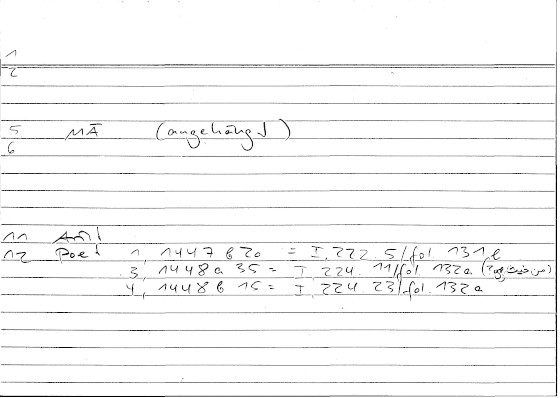 1
2
5 MĀ (angehängt)
6
11 Art!
12 Poet 1, 1447 b 20 = I, 222. 5/fol 131 b
3, 1448 a 35 = I, 224. 11/fol. 132a (من حيث
4, 1448 b 15 = I, 224. 23/fol. 132a